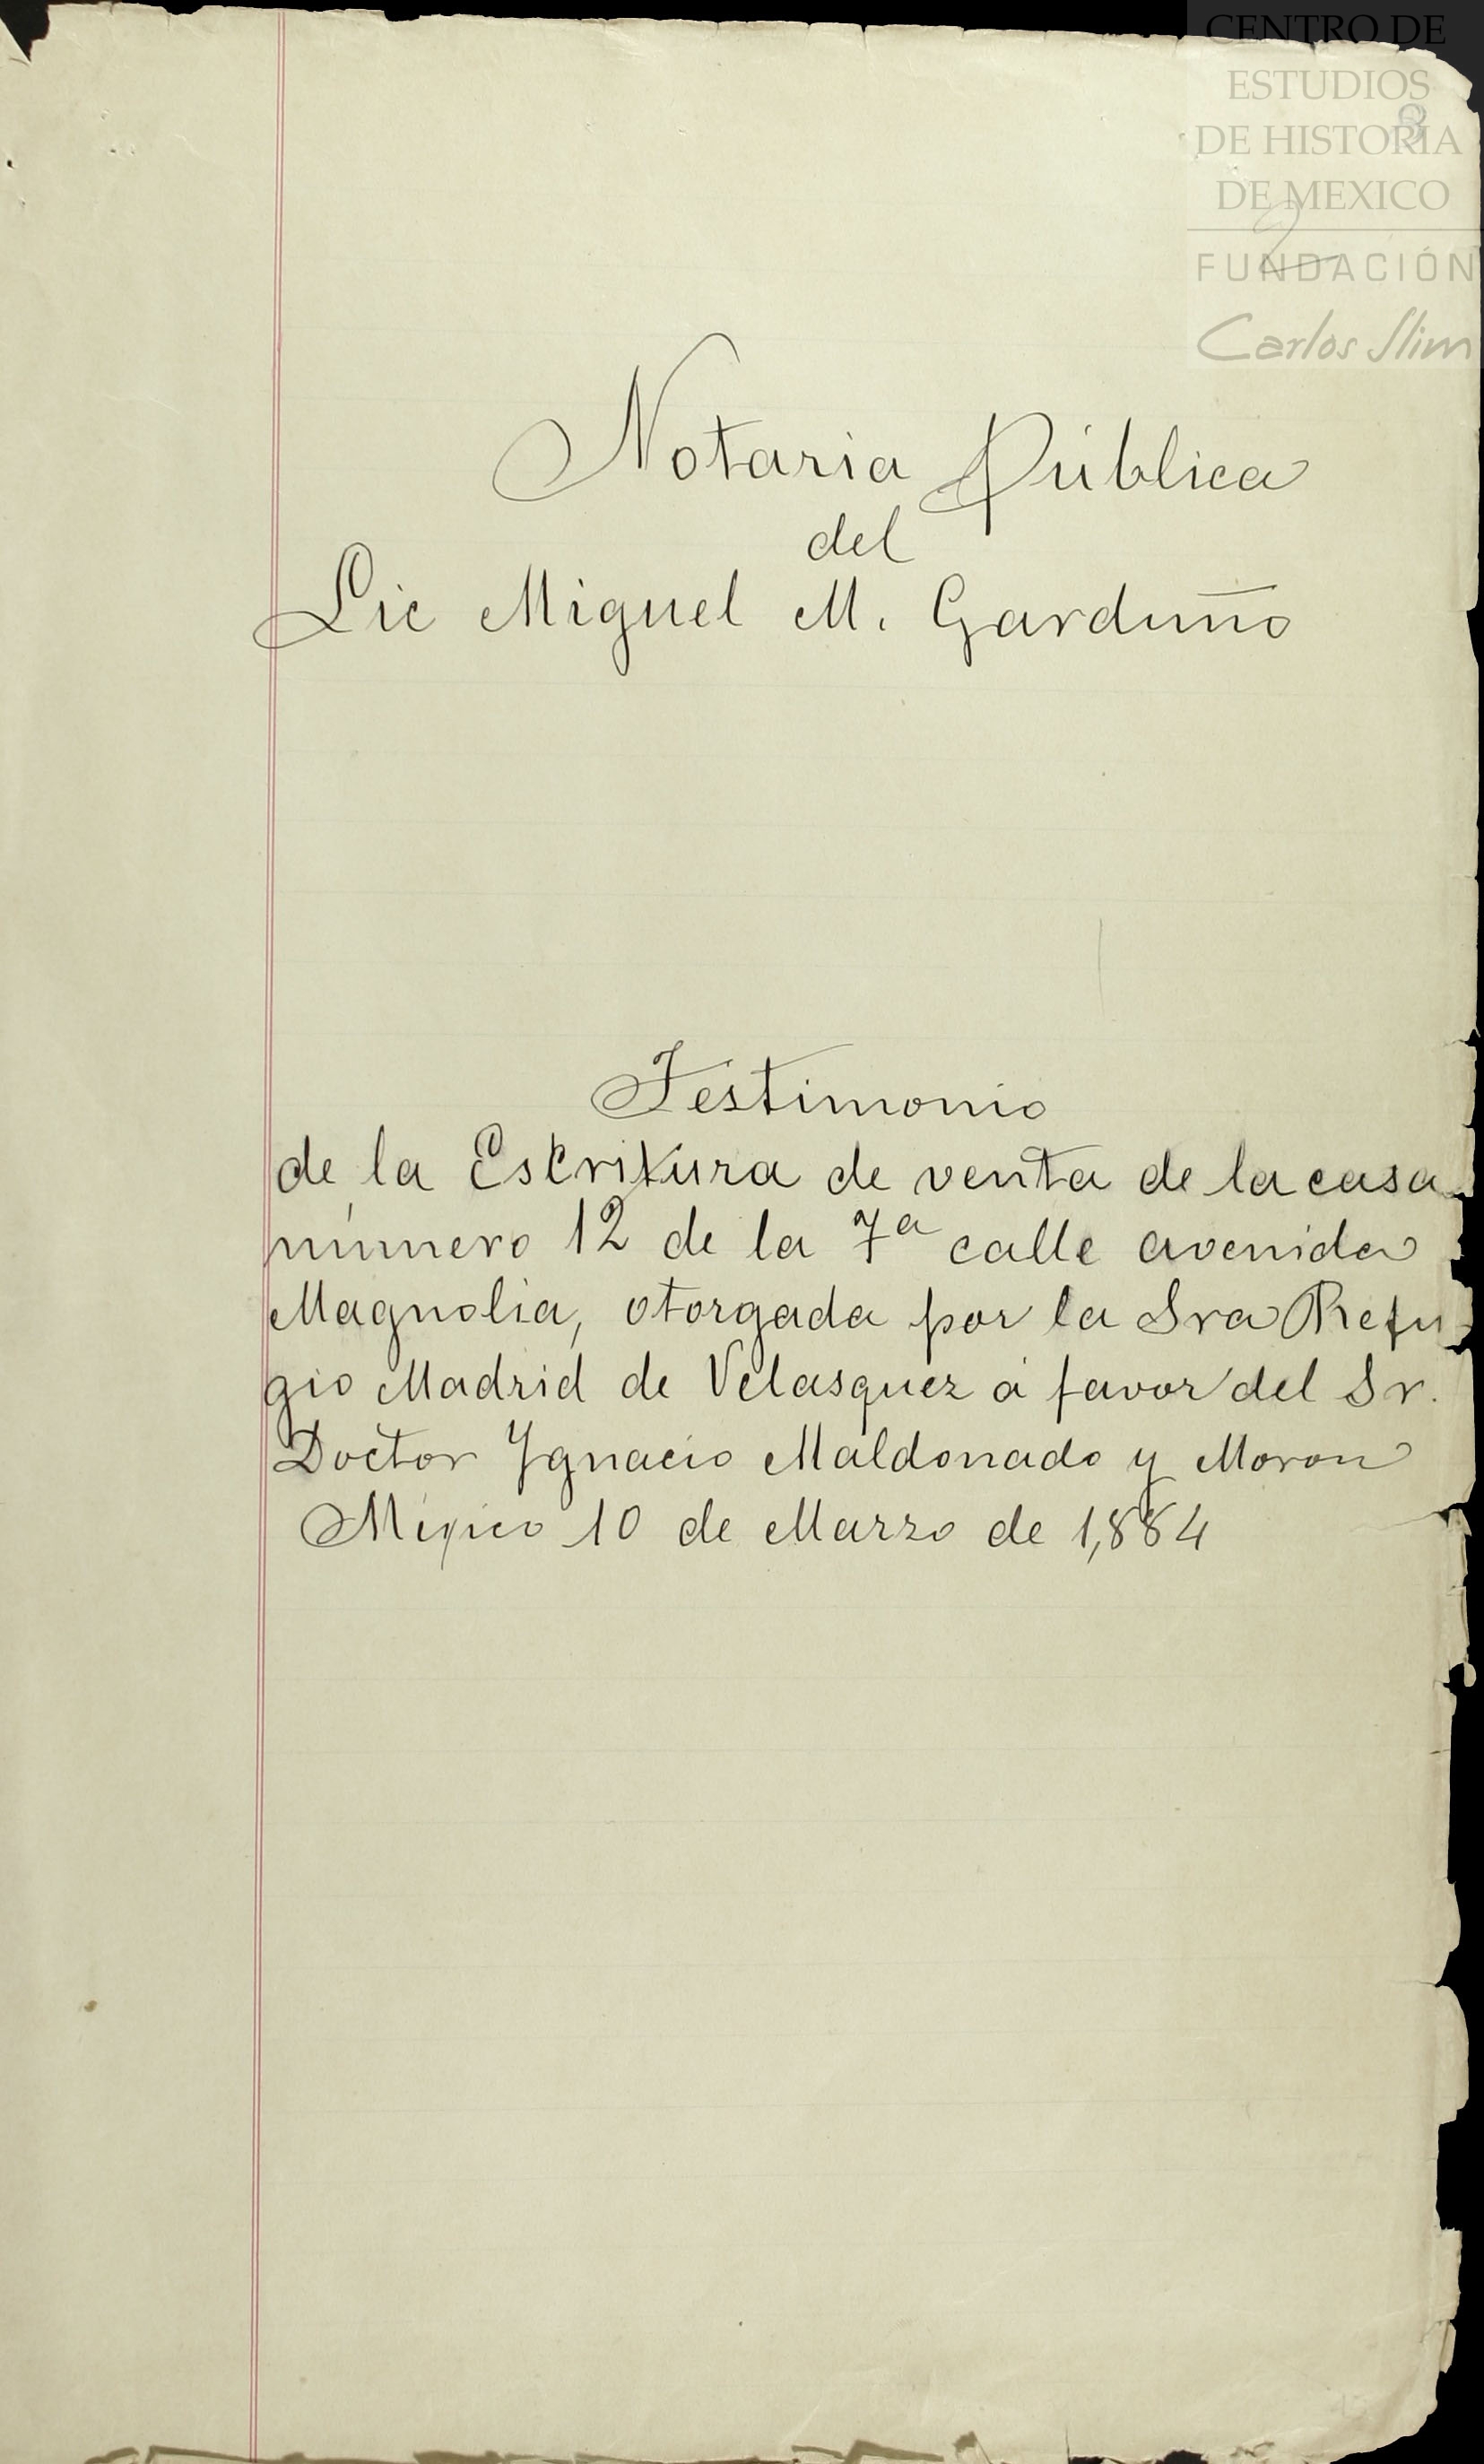 CENTRO DE
ESTUDIOS
DE HISTORIA
DE MEXICO
FUNDACIÓN
Carlos Slim
8
2
Notaria Pública
del
Lic Miguel M. Garduño
Testimonio
de la Escritura de venta de la casa
número 12 de la 7ª calle avenida
Magnolia, otorgada por la Sra Refu-
gio Madrid de Velasquez á favor del Sr.
Doctor Ygnacio Maldonado y Moron
México 10 de Marzo de 1,884